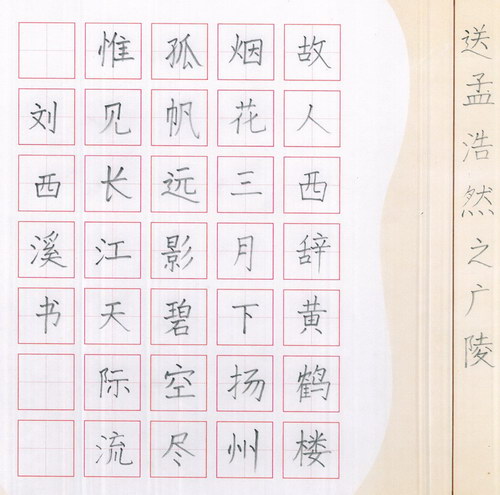 送孟浩然之广陵
故人西辞黄鹤楼
烟花三月下扬州
孤帆远影碧空尽
惟见长江天际流
刘西溪书